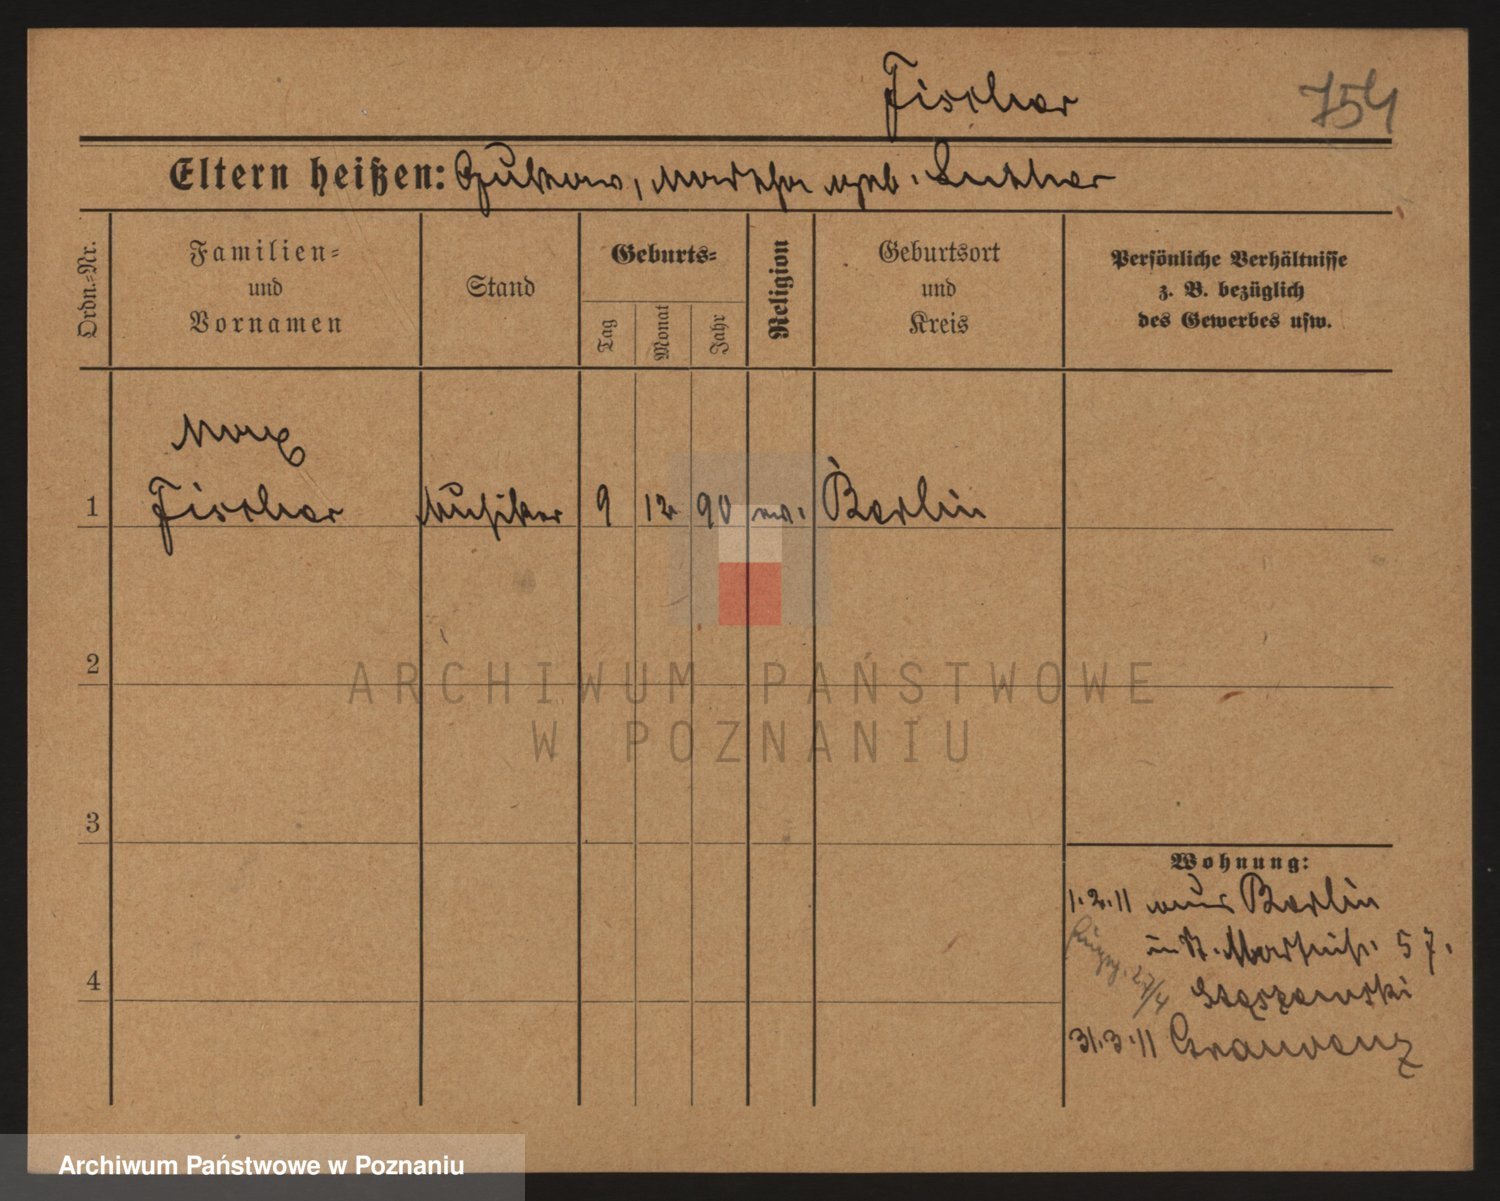 Fischer 754
Eltern heißen: Gustav, Martha geb. Luther
Ordn.-Nr.
Familien-
und
Vornamen
Stand
Geburts-
Tag
Monat
Jahr
Religion
Geburtsort
und
Kreis
Persönliche Verhältnisse
z. B. bezüglich
des Gewerbes usw.
Max
1 Fischer Musiker 9 12 90 ev. Berlin
2
ARCHIWUM PAŃSTWOWE
W POZNANIU
3
Wohnung:
1.2.11 aus Berlin
in St. Martinstr. 57.
4
27/4
31.3.11 Graudenz
Archiwum Państwowe w Poznaniu